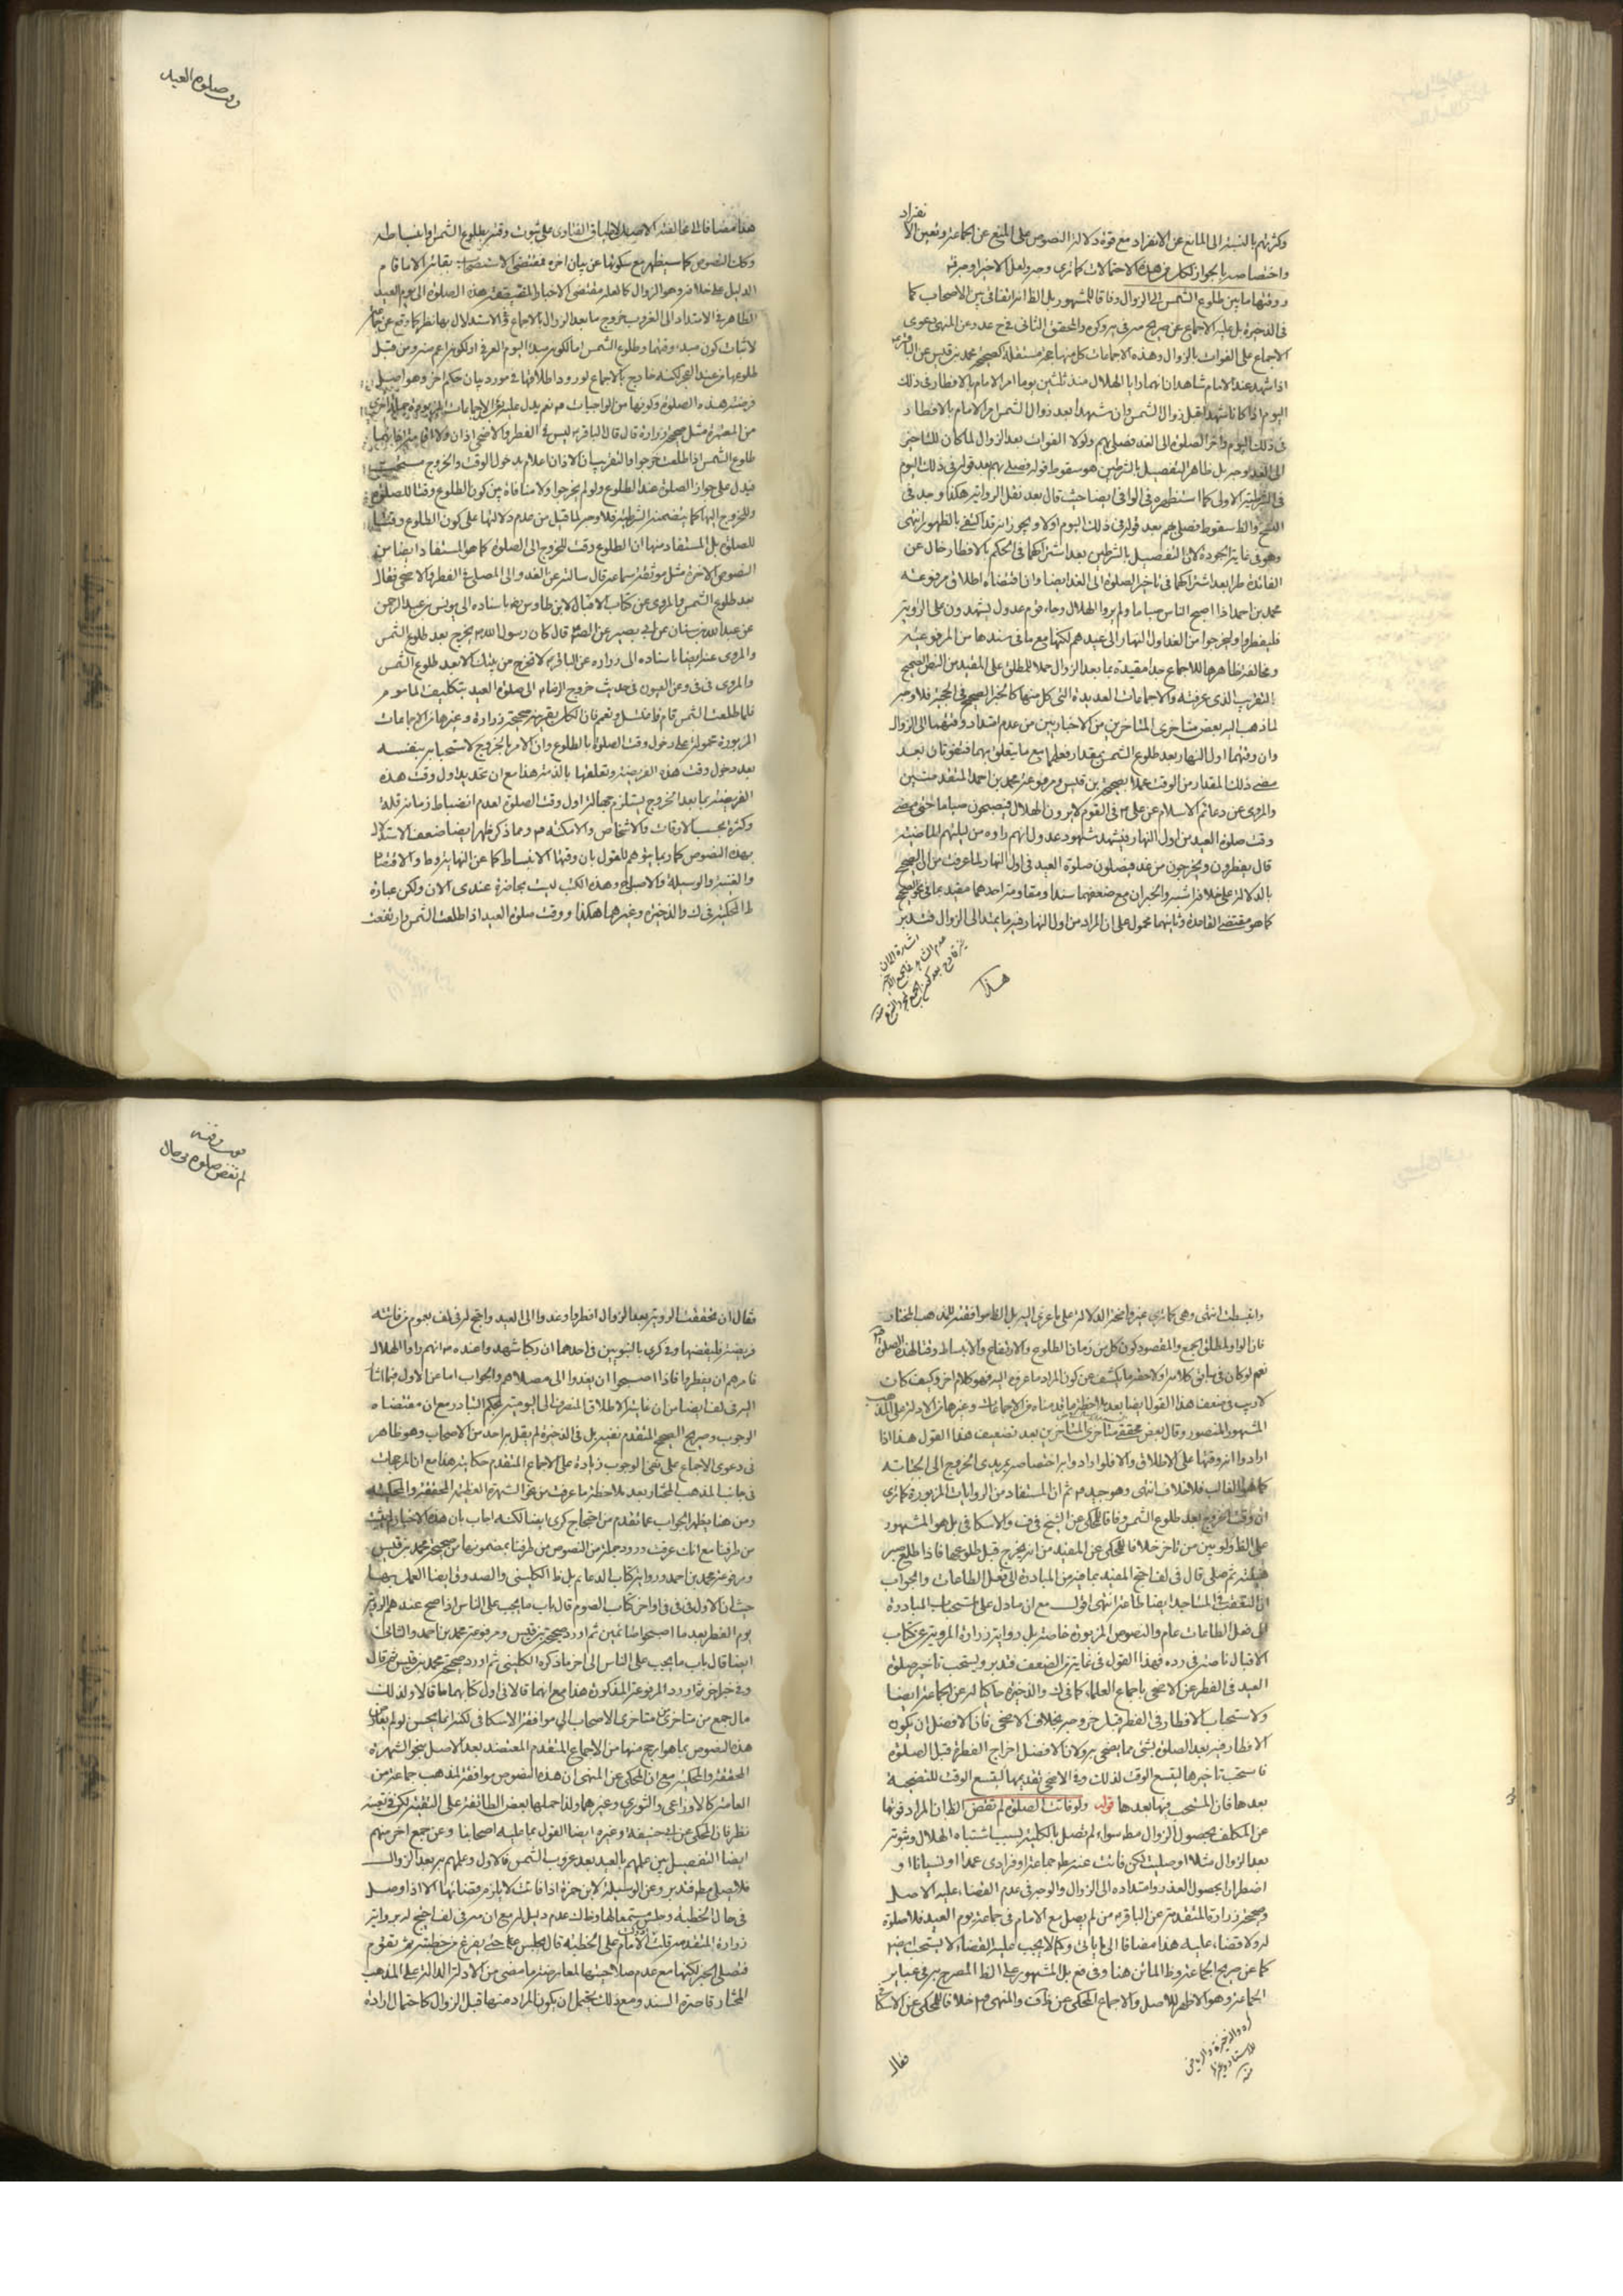 وكثرتهم بالنسبة الى المانع عن الانفراد مع قوة دلالة النصوص على المنع عن الجماعة وتعين الا
نفراد
واختصاصه بالجواز لكل من هذه الاحتمالات كما ترى وجه ولعل الاخير اوجه قوله
ووقتها ما بين طلوع الشمس الى الزوال وفاقا للمشهور بل الظ انه اتفاقى بين الاصحاب كما
فى الذخيرة بل عليه الاجماع عن صريح
الاجماع على الفوات بالزوال وهذه الاجماعات كل منها حجة مستقلة كصحيحة محمد بن قيس عن الباقر
اذا شهد عند الامام شاهدان انهما رايا الهلال منذ ثلثين يوما امر الامام بالافطار فى ذلك
اليوم اذا كانا شهدا قبل زوال الشمس وان شهدا بعد زوال الشمس امر الامام بالافطار
فى ذلك اليوم واخر الصلوة الى الغد فصلى بهم ولولا الفوات بعد الزوال لما كان للتاخير
الى الغد وجه بل ظاهر التفصيل بالشرطين هو سقوط قوله فصلى بهم بعد قوله فى ذلك اليوم
فى الشرطية الاولى كما استظهره فى الوافى ايضا حيث قال بعد نقل الرواية هكذا وجد فى
النسخ والظ سقوط فصلى بهم بعد قوله فى ذلك اليوم اولا ويجوز انه قد اكتفى بالظهور انتهى
وهو فى غاية الجودة لان التفصيل بالشرطين بعد اشتراكهما فى الحكم بالافطار خال عن
الفائدة طرا بعد اشتراكهما فى تاخير الصلوة الى الغد ايضا وان اقتضاه اطلاق مرفوعة
محمد بن احمد اذا اصبح الناس صياما ولم يروا الهلال وجاء قوم عدول يشهدون على الرؤية
فليفطروا وليخرجوا من الغد اول النهار الى عيدهم لكنها مع ما فى سندها من المرفوعية
ومخالفة ظاهرها للاجماع جدا مقيدة بما بعد الزوال حملا للمطلق على المقيد من النص الصحيح
بالتقريب الذى عرفته والاجماعات العديدة التى كل منها كالخبر الصحيح فى الحجية فلا وجه
لما ذهب اليه بعض متاخرى المتاخرين من الاخباريين من عدم امتداد وقتهما الى الزوال
وان وقتهما اول النهار بعد طلوع الشمس بمقدار فعلهما مع ما يتعلق بهما فتفوتان بعد
مضى ذلك المقدار من الوقت عملا بصحيحة بن قيس ومرفوعة محمد بن احمد المتقدمتين
والمروى عن دعائم الاسلام عن على م فى القوم لا يرون الهلال فيصبحون صياما حتى يمضى
وقت صلوة العيد من اول النهار فيشهد شهود عدول انهم راوه من ليلتهم الماضية
قال يفطرون ويخرجون من غد فيصلون صلوة العيد فى اول النهار لما عرفت من الصحيح
بالدلالة على خلافه اشبه والخبران مع ضعفهما سندا ومقاومة احدهما مقيد بما فى الصحيح
كما هو مقتضى القاعدة وثانيهما محمول على ان المراد من اول النهار فيه ما يمتد الى الزوال فتدبر
هذا
وقت صلوة العيد
هذا مضافا الى مخالفته الاصل لاطباق الفتاوى على ثبوت وقته بطلوع الشمس وانبساطه
وكان النصوص كما سيظهر مع سكوتها عن بيان اخره فمقتضى الاستصحاب بقائه الا ما قام
الدليل على خلافه وهو الزوال كما لعله مقتضى الاخبار المضيفة هذه الصلوة الى يوم العيد
الظاهر فى الامتداد الى الغروب خروج ما بعد الزوال بالاجماع وفى الاستدلال بها نظر كما وقع عن جماعة
لاثبات كون مبدء وقتهما وطلوع الشمس اما لكونه مبدا اليوم العرفى او لكونه اعم منه ومن قبل
طلوعها من عند الفجر لكنه خارج بالاجماع لورود اطلاقها فى مورد بيان حكم اخر وهو اصل
فرضية هذه الصلوة وكونها من الواجبات
من المعتبرة مثل صحيحة زرارة قال قال الباقر م ليس فى الفطر والاضحى اذان ولا اقامة اذانهما
طلوع الشمس اذا طلعت خرجوا والتقريب ان الاذان اعلام بدخول الوقت والخروج مستحب
فيدل على جواز الصلوة عند الطلوع ولو لم يخرجوا ولا منافاة بين كون الطلوع وقتا للصلوة
وللخروج اليها كما يتضمنه الشرطية فلا وجه لما قيل من عدم دلالتها على كون الطلوع وقتا
للصلوة بل المستفاد منها ان الطلوع وقت للخروج الى الصلوة كما هو المستفاد ايضا من
النصوص الاخرة مثل موثقة سماعة قال سالته عن الغدو الى المصلى فى الفطر والاضحى فقال
بعد طلوع الشمس والمروى عن كتاب الاقبال لابن طاوس ره باسناده الى يونس بن عبد الرحمن
عن عبد الله بن سنان عن ابى بصير عن الصم قال كان رسول الله ص يخرج بعد طلوع الشمس
والمروى عنه ايضا باسناده الى زرارة عن الباقر م لا تخرج من بيتك الا بعد طلوع الشمس
والمروى فى فى وعن العيون فى حديث خروج الرضا م الى صلوة العيد بتكليف المامون
فلما طلعت الشمس قام فاغتسل وتعمم فان الكل بقرينة صحيحة زرارة وغيرها من الاجماعات
المزبورة محمولة على دخول وقت الصلوة بالطلوع وان الامر بالخروج لاستحبابه بنفسه
بعد دخول وقت هذه الفريضة وتعلقها بالذمة هذا مع ان تحديد اول وقت هذه
الفريضة بما بعد الخروج يستلزم جهالة اول وقت الصلوة لعدم انضباط زمانه قلة
وكثرة بحسب الاوقات والاشخاص والامكنة م ومما ذكر ظهر ايضا ضعف الاستدلال
بهذه النصوص كما ربما يتوهم للقول بان وقتها الانبساط كما عن النهاية وط والاقتصا
والغنية والوسيلة والاصباح وهذه الكتب ليست بحاضرة عندى الان ولكن عبارة
ط المحكية فى ك والذخيرة وغيرهما هكذا ووقت صلوة العيد اذا طلعت الشمس وارتفعت
وانبسطت انتهى وهى كما ترى غير واضحة الدلالة على ما عزى اليه بل الظ موافقته للمذهب المختار
فان الواو لمطلق الجمع والمقصود كون كل من زمان الطلوع والارتفاع والانبساط وقتا لهذه الصلوة
نعم لو كان فى سابق كلامه او لاحقه ما يكشف عن كون المراد ما عرف اليه فهو كلام اخر وكيف كان
لا ريب فى ضعف هذا القول ايضا بعد ملاحظة ما قدمناه من الاجماعات وغيرها من الادلة على المذهب
المشهور المنصور وقال بعض محققى متاخرى المتاخرين بعد تضعيف هذا القول هذا اذا
ارادوا انه وقتها على الاطلاق والا فلو ارادوا به اختصاصه بمريدى الخروج الى الجبانة
كما هو الغالب فلا خلاف انتهى وهو جيد م ثم ان المستفاد من الروايات المزبورة كما ترى
ان وقت الخروج بعد طلوع الشمس وفاقا للمحكى عن الشيخ فى ف والاسكافى بل هو المشهور
على الظ ولو بين من تاخر خلافا للمحكى عن المفيد من انه يخرج قبل طلوعها فاذا طلع صبر
هنيئة ثم صلى قال فى لف احتج المفيد بما فيه من المبادرة الى فعل الطاعات والجواب
ان التعقيب فى المساجد ايضا طاعة انتهى اقول مع ان ما دل على استحباب المبادرة
الى فعل الطاعات عام والنصوص المزبورة خاصة بل رواية زرارة المروية عن كتاب
الاقبال ناصة فى رده فهذا القول فى غاية من الضعف فتدبر ويستحب تاخير صلوة
العيد فى الفطر عن الاضحى باجماع العلماء كما فى ك والذخيرة حاكيا له عن الجماعة ايضا
ولاستحباب الافطار فى الفطر قبل خروجه بخلاف الاضحى فان الافضل ان يكون
الافطار فيه بعد الصلوة بشئ مما يضحى به ولان الافضل اخراج الفطرة قبل الصلوة
فاستحب تاخيرها ليتسع الوقت لذلك وفى الاضحى تقديمها ليتسع الوقت للتضحية
بعدها فان المستحب فيها بعدها قوله ولو فاتت الصلوة لم تقض الظ ان المراد فوتها
عن المكلف بحصول الزوال مط سواء لم تصل بالكلية لسبب اشتباه الهلال وثبوته
بعد الزوال مثلا او صليت لكن فاتت عنه مط جماعة او فرادى عمدا او نسيانا او
اضطرارا بحصول العذر وامتداده الى الزوال والوجه فى عدم القضاء عليه الاصل
وصحيحة زرارة المتقدمة عن الباقر م من لم يصل مع الامام فى جماعة يوم العيد فلا صلوة
له ولا قضاء عليه هذا مضافا الى ما ياتى وكما لا يجب عليه القضاء لا يستحب ايضا
كما عن صريح الجماعة وظ الماتن هنا وفى فع بل المشهور على الظ المصرح به فى عباير
الجماعة وهو الاظهر للاصل والاجماع المحكى عن ظ ف والمنتهى م خلافا للمحكى عن الاسكا
فقال
فوت وقته
لم تقض صلوة فى حال
فقال ان تحققت الرؤية بعد الزوال افطروا وغدوا الى العيد واحتج له فى لف بعموم من فاتته
فريضة فليقضها وفى كرى بالنبويين فى احدهما ان ركبا شهدوا عنده م انهم راوا الهلال
فامرهم ان يفطروا فاذا اصبحوا ان يغدوا الى مصلاهم والجواب اما عن الاول فبما اشا
اليه فى لف ايضا من ان غايته الاطلاق المنصرف الى اليومية بحكم التبادر مع ان مقتضاه
الوجوب وصريح الصحيح المتقدم نفيه بل فى الذخيرة لم يقل به احد من الاصحاب وهو ظاهر
فى دعوى الاجماع على نفى الوجوب زيادة على الاجماع المتقدم حكايته هذا مع ان المرجحات
فى جانب المذهب المختار بعد ملاحظة ما عرفت من نحو الشهرة العظيمة المحققة والمحكية
ومن هنا يظهر الجواب عما تقدم من احتجاج كرى ايضا لكنه اجاب بان هذه الاخبار ليست
من طرقنا مع انك عرفت ورود جملة من النصوص من طرقنا بمضمونها من صحيحة محمد بن قيس
ومرفوعة محمد بن احمد ورواية كتاب الدعائم بل ظ الكلينى والصدوق ايضا العمل بهما
حيث ان الاول فى فى فى اواخر كتاب الصوم قال باب ما يجب على الناس اذا صح عندهم الرؤية
يوم الفطر بعد ما اصبحوا صائمين ثم اورد صحيحة بن قيس ومرفوعة محمد بن احمد والثانى
ايضا قال باب ما يجب على الناس الى اخر ما ذكره الكلينى ثم اورد صحيحة محمد بن قيس ثم قال
وفى خبر اخر ثم اورد المرفوعة المذكورة هذا مع انهما قالا فى اول كتابهما ما قالا ولذلك
مال جمع من متاخرى متاخرى الاصحاب الى موافقة الاسكافى لكنه انما يحسن لو لم يعارض
هذه النصوص بما هو ارجح منها من الاجماع المتقدم المعتضد بعد الاصل بنحو الشهرة
المحققة والمحكية مع ان المحكى عن المنتهى ان هذه النصوص موافقة لمذهب جماعة من
العامة كالاوزاعى والثورى وغيرهما ولذا حملها بعض الطائفة على التقية لكن فى تعينه
نظر فان المحكى عن ابى حنيفة وغيره ايضا القول بما عليه اصحابنا وعن جمع اخر منهم
ايضا التفصيل بين علمهم بالعيد بعد غروب الشمس فالاول وعلمهم به بعد الزوال
فلا يصلى مط فتدبر وعن الوسيلة لابن حمزة اذا فاتت لا يلزم قضائها الا اذا وصل
فى حال الخطبة وجلس مستمعا لها وظ لك عدم دليل له مع ان سره فى لف احتج له برواية
زرارة المتقدمة قلت ادركت الامام على الخطبة قال يجلس حتى يفرغ من خطبته ثم تقوم
فتصلى الخبر لكنها مع عدم صلاحيتها لمعارضة ما مضى من الادلة الدالة على المذهب
المختار قاصرة السند ومع ذلك يحتمل ان يكون المراد منها قبل الزوال كاحتمال ارادة